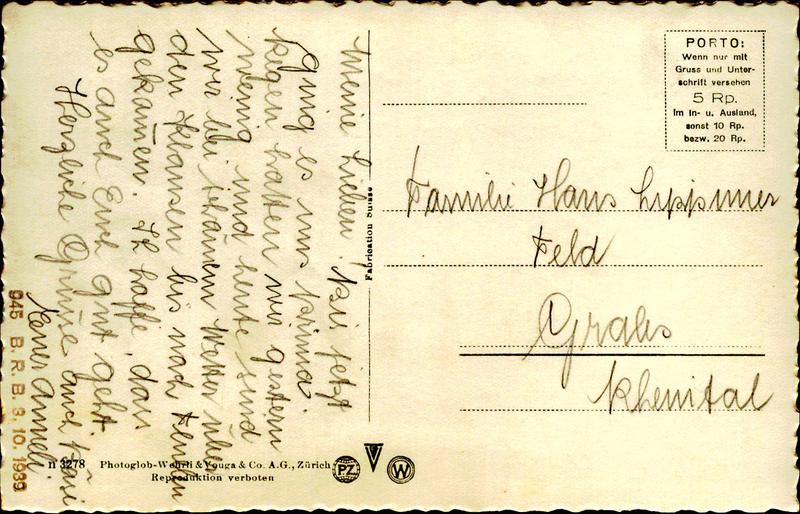 Meine Lieben. Bis jetzt
ging es uns prima.
Regen hatten wir gestern
wenig und heute sind
wir bei schönem Wetter über
den Klausen bis nach
gekommen. Ich hoffe, dass
es auch Euch gut geht.
Herzliche Grüsse auch
Anneli.
PORTO:
Wenn nur mit
Gruss und Unter-
schrift versehen
5 Rp.
im In- u. Ausland,
sonst 10 Rp.
bezw. 20 Rp.
Familie Hans
Feld
Grabs
Rheintal
Fabrication Suisse
n 3278 Photoglob-Wehrli & Vouga & Co. A.G., Zürich
Reproduktion verboten
PZ W
945 B.R.B. 3.10.1939